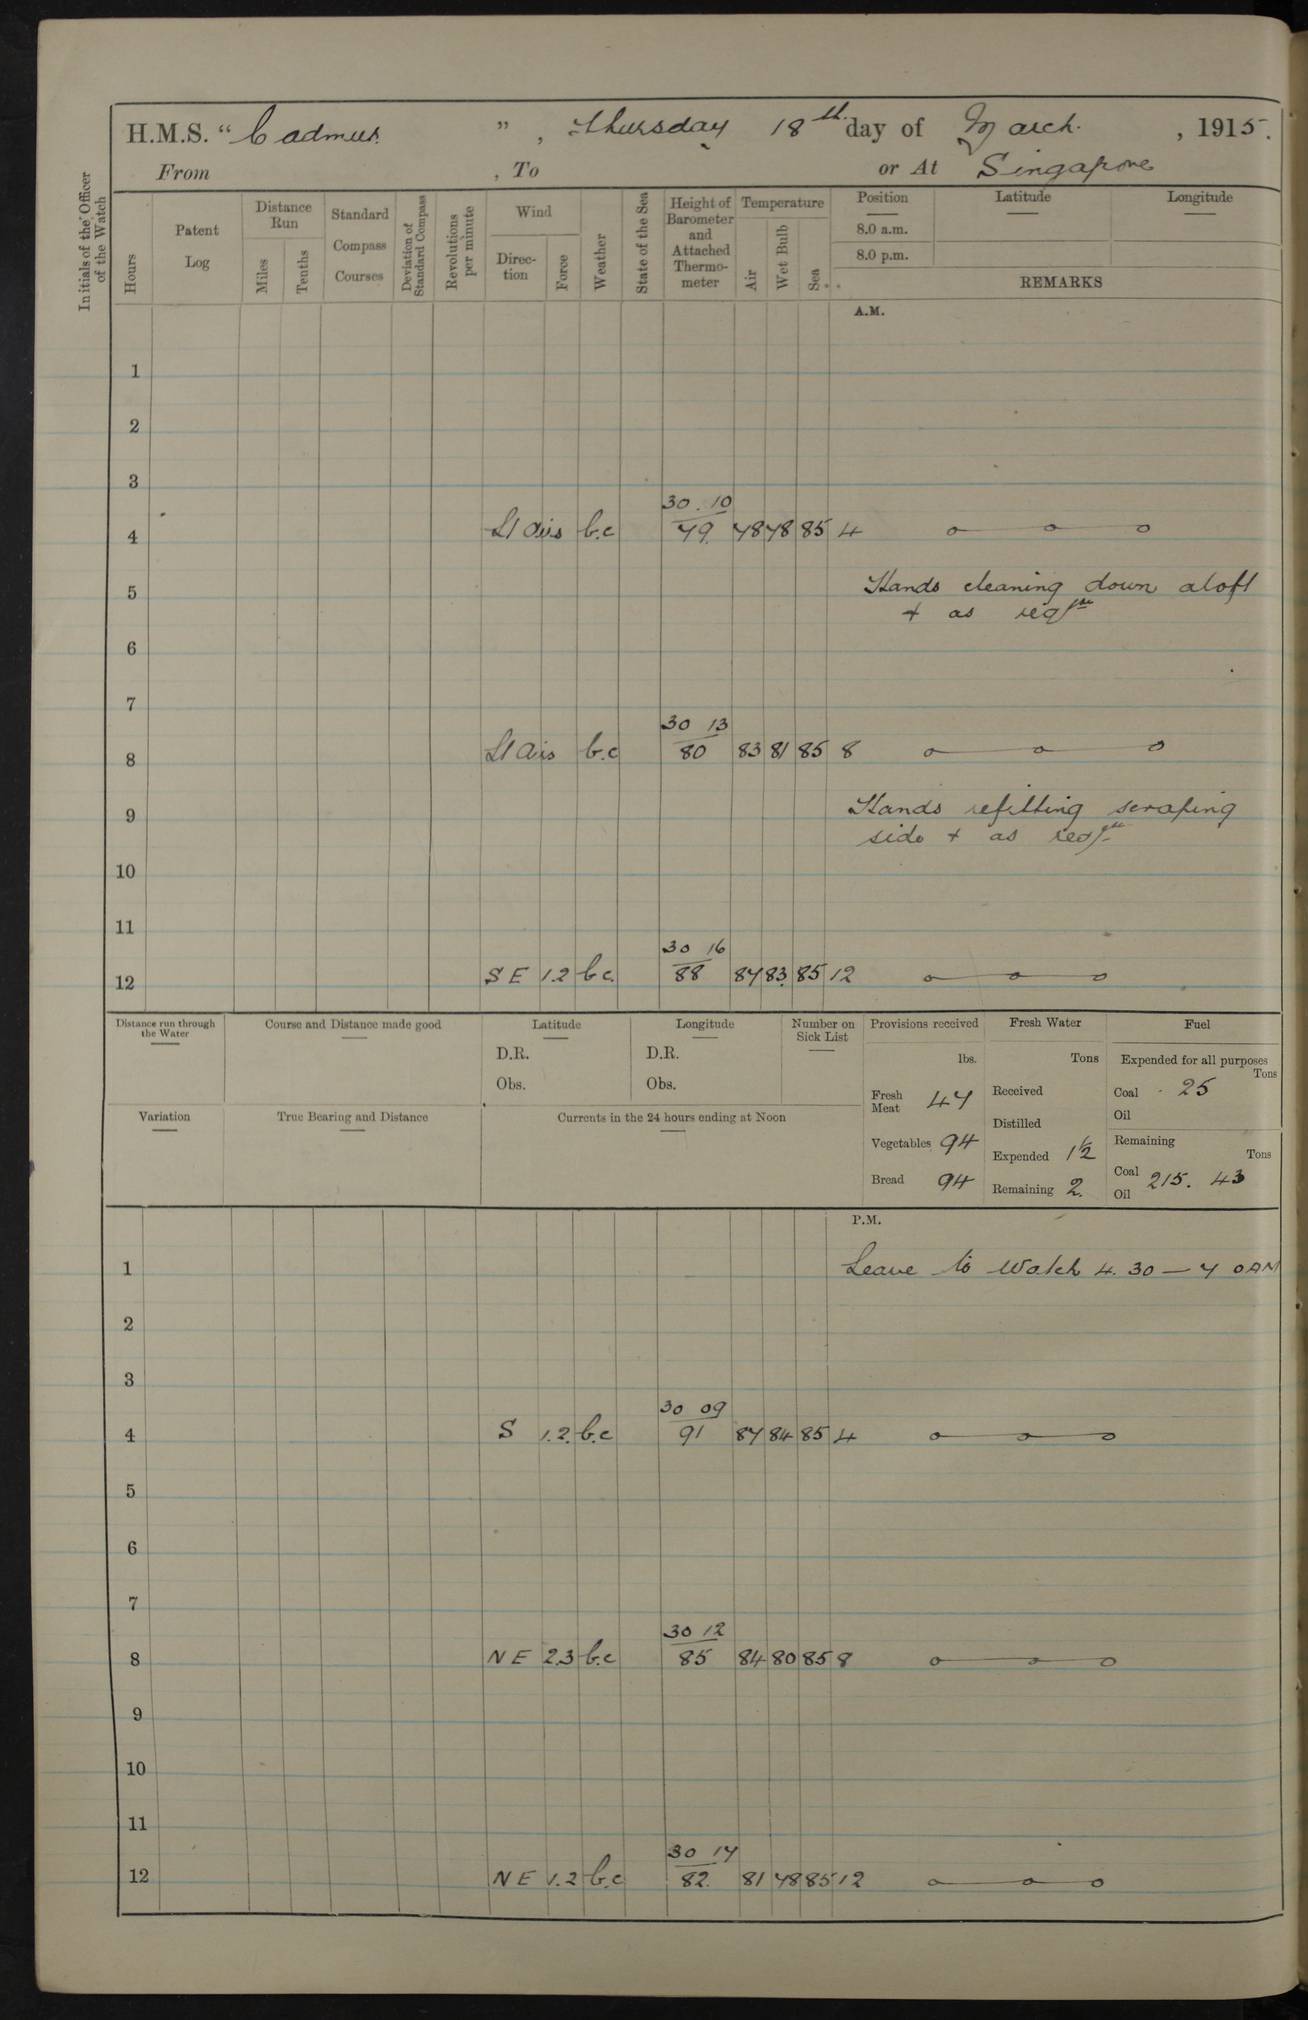 H.M.S. " Cadmus. " , Thursday 18th day of March. , 1915.
From , To or At Singapore
Initials of the Officer of the Watch
Hours
Patent Log
Distance Run
Miles
Tenths
Standard Compass Courses
Deviation of Standard Compass
Revolutions per minute
Wind
Direction
Force
Weather
State of the Sea
Height of Barometer and Attached Thermometer
Temperature
Air
Wet Bulb
Sea
Position
8.0 a.m.
8.0 p.m.
Latitude
Longitude
REMARKS
A.M.
1
2
3
30.10
4 Lt airs b.c 79 78 78 85 4
5 Hands cleaning down aloft
+ as reqte
6
7
30 13
8 Lt Airs b.c 80 83 81 85 8
9 Hands refitting scraping
side + as reqte
10
11
30 16
12 S E 1.2 b.c. 88 87 83 85 12
Distance run through the Water
Course and Distance made good
Latitude
D.R.
Obs.
Longitude
D.R.
Obs.
Number on Sick List
Provisions received
lbs.
Fresh Meat 47
Vegetables 94
Bread 94
Fresh Water
Tons
Received
Distilled
Expended 1½
Remaining 2.
Fuel
Expended for all purposes
Tons
Coal · 25
Oil
Remaining
Tons
Coal 215. 43
Oil
Variation
True Bearing and Distance
Currents in the 24 hours ending at Noon
P.M.
1 Leave to Watch 4.30 — 7 0 AM
2
3
30 09
4 S 1.2. b.c 91 87 84 85 4
5
6
7
30 12
8 N E 2.3 b.c 85 84 80 85 8
9
10
11
30 17
12 N E 1.2 b.c 82. 81 78 85 12